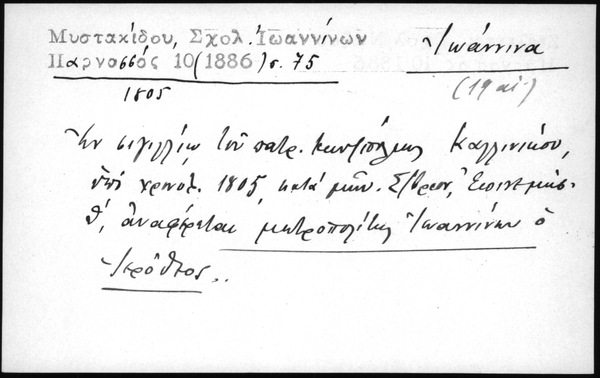 Μυστακίδου, Σχολ. Ἰωαννίνων
Παρνασσός 10 (1886) σ. 75
Ἰωάννινα
(19 αἰ.)
1805
Ἐν σιγιλλίῳ τοῦ πατρ. Κων/πόλεως Καλλινίκου,
ὑπό χρονολ. 1805, κατά μῆν. Σ/βριον, Ἐπινεμήσ.
θ', ἀναφέρεται μητροπολίτης Ἰωαννίνων ὁ
Ἱερόθεος..